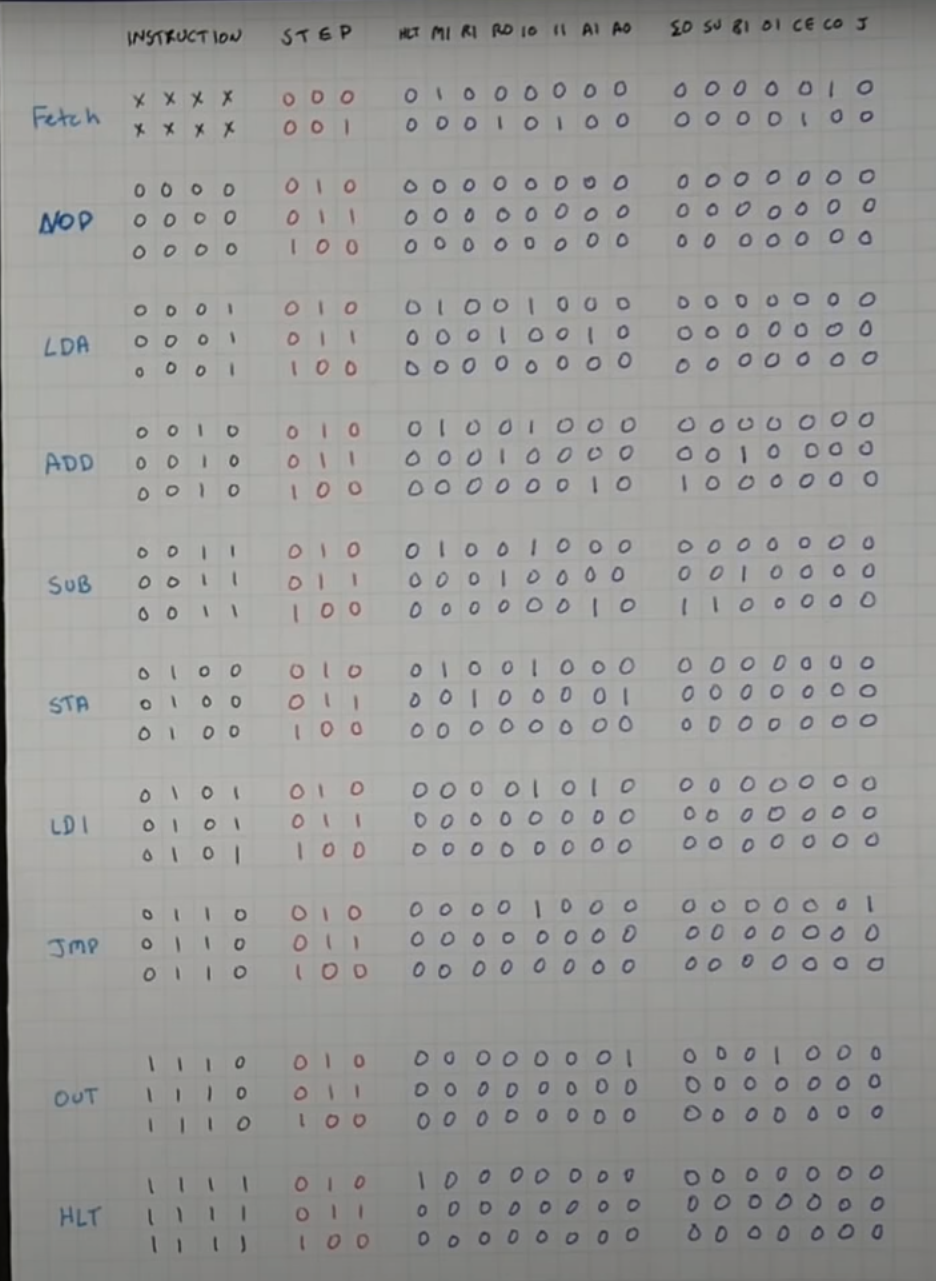 INSTRUCTION STEP HLT MI RI RO IO II AI AO ΣO SU BI OI CE CO J
Fetch
X X X X 0 0 0 0 1 0 0 0 0 0 0 0 0 0 0 0 1 0
X X X X 0 0 1 0 0 0 1 0 1 0 0 0 0 0 0 1 0 0
NOP
0 0 0 0 0 1 0 0 0 0 0 0 0 0 0 0 0 0 0 0 0 0
0 0 0 0 0 1 1 0 0 0 0 0 0 0 0 0 0 0 0 0 0 0
0 0 0 0 1 0 0 0 0 0 0 0 0 0 0 0 0 0 0 0 0 0
LDA
0 0 0 1 0 1 0 0 1 0 0 1 0 0 0 0 0 0 0 0 0 0
0 0 0 1 0 1 1 0 0 0 1 0 0 1 0 0 0 0 0 0 0 0
0 0 0 1 1 0 0 0 0 0 0 0 0 0 0 0 0 0 0 0 0 0
ADD
0 0 1 0 0 1 0 0 1 0 0 1 0 0 0 0 0 0 0 0 0 0
0 0 1 0 0 1 1 0 0 0 1 0 0 0 0 0 0 1 0 0 0 0
0 0 1 0 1 0 0 0 0 0 0 0 0 1 0 1 0 0 0 0 0 0
SUB
0 0 1 1 0 1 0 0 1 0 0 1 0 0 0 0 0 0 0 0 0 0
0 0 1 1 0 1 1 0 0 0 1 0 0 0 0 0 0 1 0 0 0 0
0 0 1 1 1 0 0 0 0 0 0 0 0 1 0 1 1 0 0 0 0 0
STA
0 1 0 0 0 1 0 0 1 0 0 1 0 0 0 0 0 0 0 0 0 0
0 1 0 0 0 1 1 0 0 1 0 0 0 0 1 0 0 0 0 0 0 0
0 1 0 0 1 0 0 0 0 0 0 0 0 0 0 0 0 0 0 0 0 0
LDI
0 1 0 1 0 1 0 0 0 0 0 1 0 1 0 0 0 0 0 0 0 0
0 1 0 1 0 1 1 0 0 0 0 0 0 0 0 0 0 0 0 0 0 0
0 1 0 1 1 0 0 0 0 0 0 0 0 0 0 0 0 0 0 0 0 0
JMP
0 1 1 0 0 1 0 0 0 0 0 1 0 0 0 0 0 0 0 0 0 1
0 1 1 0 0 1 1 0 0 0 0 0 0 0 0 0 0 0 0 0 0 0
0 1 1 0 1 0 0 0 0 0 0 0 0 0 0 0 0 0 0 0 0 0
OUT
1 1 1 0 0 1 0 0 0 0 0 0 0 0 1 0 0 0 1 0 0 0
1 1 1 0 0 1 1 0 0 0 0 0 0 0 0 0 0 0 0 0 0 0
1 1 1 0 1 0 0 0 0 0 0 0 0 0 0 0 0 0 0 0 0 0
HLT
1 1 1 1 0 1 0 1 0 0 0 0 0 0 0 0 0 0 0 0 0 0
1 1 1 1 0 1 1 0 0 0 0 0 0 0 0 0 0 0 0 0 0 0
1 1 1 1 1 0 0 0 0 0 0 0 0 0 0 0 0 0 0 0 0 0